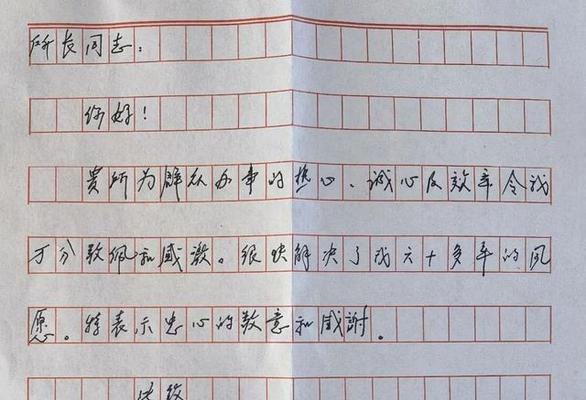 所长同志:
你好!
贵所为群众办事的热心、诚心及效率令我
万分敬佩和感激。很快解决了我六十多年的夙
愿。特表示忠心的敬意和感謝。
此致